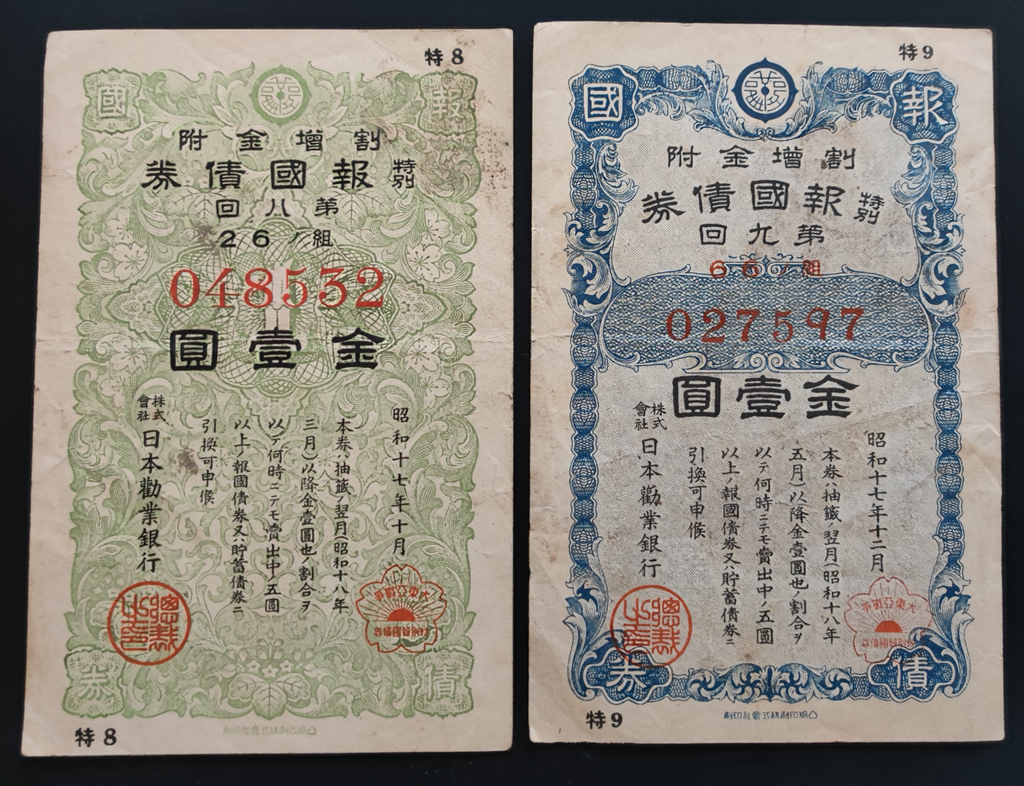 特8
報國
割増金附
特別報國債券
第八回
26ノ組
048532
金壹圓
昭和十七年十月
本券ハ抽籤ノ翌月(昭和十八年
三月)以降金壹圓也ノ割合ヲ
以テ何時ニテモ賣出中ノ五圓
以上ノ報國債券又ハ貯蓄債券ニ
引換可申候
株式會社日本勸業銀行
總裁之印
大東亞戰爭
債券
特8
特9
報國
割増金附
特別報國債券
第九回
66ノ組
027597
金壹圓
昭和十七年十二月
本券ハ抽籤ノ翌月(昭和十八年
五月)以降金壹圓也ノ割合ヲ
以テ何時ニテモ賣出中ノ五圓
以上ノ報國債券又ハ貯蓄債券ニ
引換可申候
株式會社日本勸業銀行
總裁之印
大東亞戰爭
債券
特9